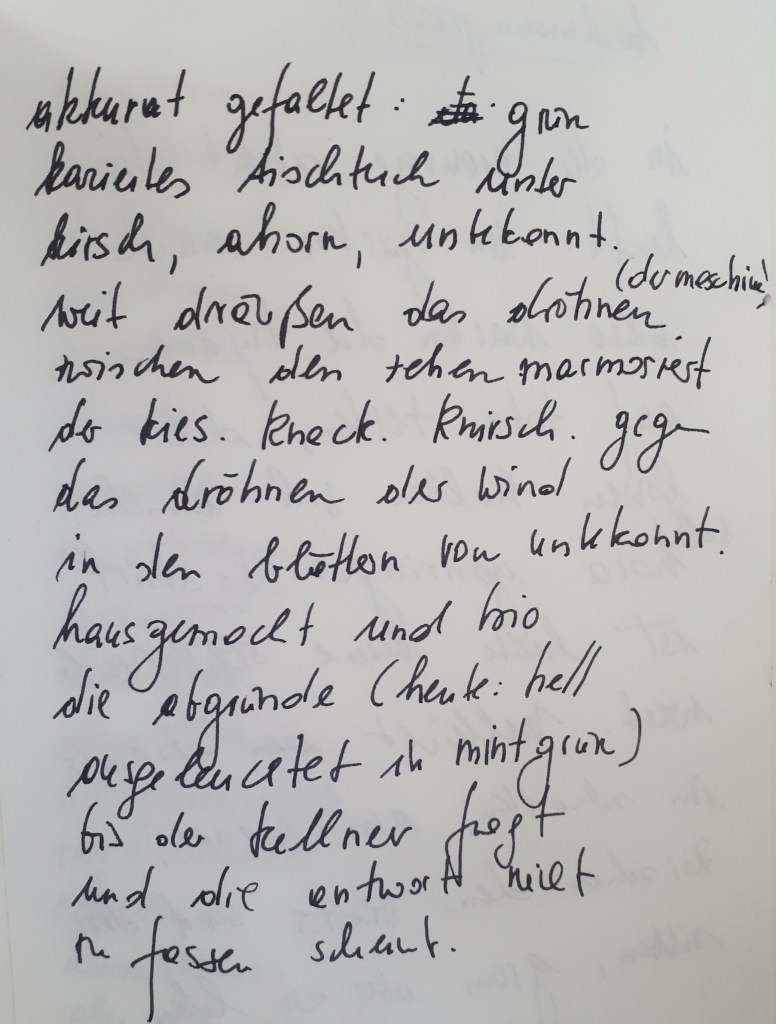 akkurat gefaltet: grün
kariertes tischtuch unter
kirsch, ahorn, unbekannt.
weit draußen das dröhnen (der maschine)
zwischen den zehen marmoriert
der kies. knack. knirsch. gegen
das dröhnen der wind
in den blättern von unbekannt.
hausgemacht und bio
die abgründe (heute: hell
ausgeleuchtet in mintgrün)
bis der kellner fragt
und die antwort nicht
zu fassen scheint.